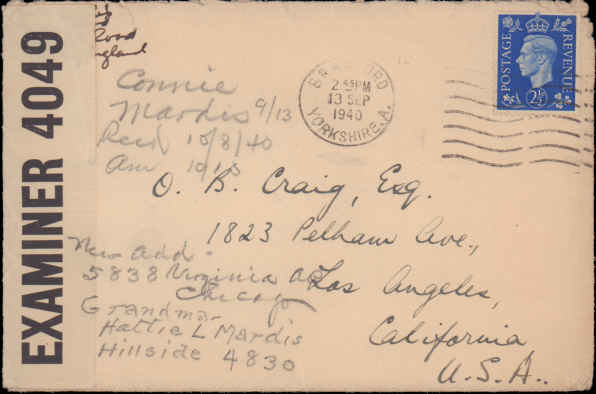 EXAMINER 4049
Road
England
BRADFORD
2 PM
13 SEP
1940
YORKSHIRE.A.
POSTAGE
REVENUE
2½D
Connie
Mardis 9/13
Recd 10/8/40
Am 10/10
O. B. Craig, Esq.
1823 Pelham Ave.,
Los Angeles,
California
U.S.A..
New add -
5838 Virginia
Chicago
Grandma-
Hattie L Mardis
Hillside 4830